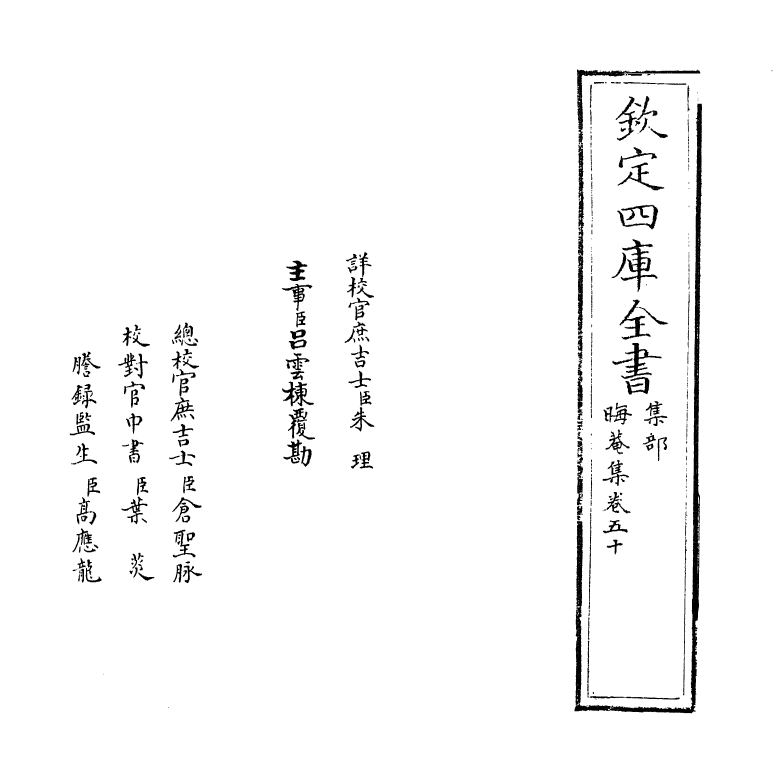 欽定四庫全書
集部
晦菴集卷五十
詳校官庶吉士臣朱理
主事臣呂雲棟覆勘
總校官庶吉士臣倉聖脉
校對官中書臣葉菼
謄録監生臣高應龍